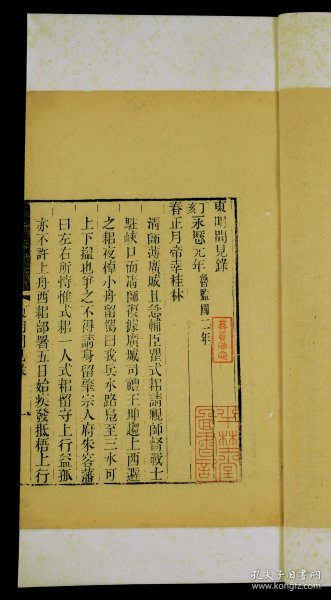 東明聞見錄
永歷元年 魯監國二年
春正月帝幸桂林
清師薄廣城且急輔臣瞿式耜請視師督戰士
駐峽口而清師復據廣城司禮王坤趣上西避
之耜夜棹小舟留蹕曰我兵水路急至三水可
上下搤也爭之不得請身留肇宗人府朱容藩
曰左右所恃惟式耜一人式耜留守上行益孤
亦不許上舟西耜部署五日始疾發抵梧上行
孔夫子旧书网